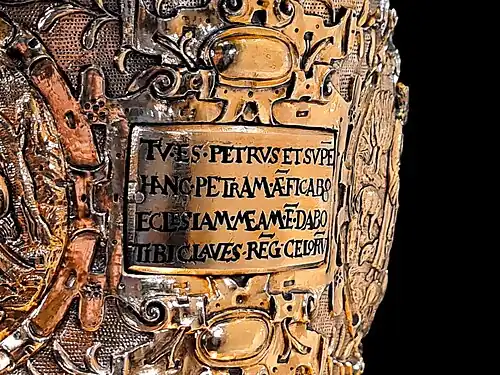 TV·ES·PETRVS ET SVPĒ
HANC·PETRAM Æ̃FICABO
ECLESIAM·MEAM·Ē·DABO
TIBI CLAVES·REG̃ CELOR̃V